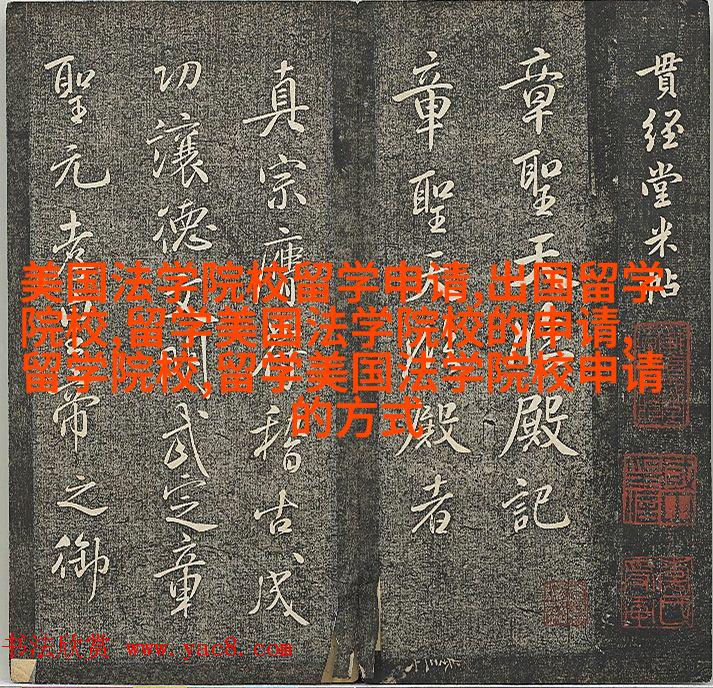 貫經堂米帖
章聖天臨殿記
章聖天臨殿者
真宗膺符稽古成
功讓德文明武定章
聖元孝皇帝之御
美国法学院校留学申请,出国留学
院校,留学美国法学院校的申请,
留学院校,留学美国法学院校申请
的方式
书法欣赏 www.yac8.com